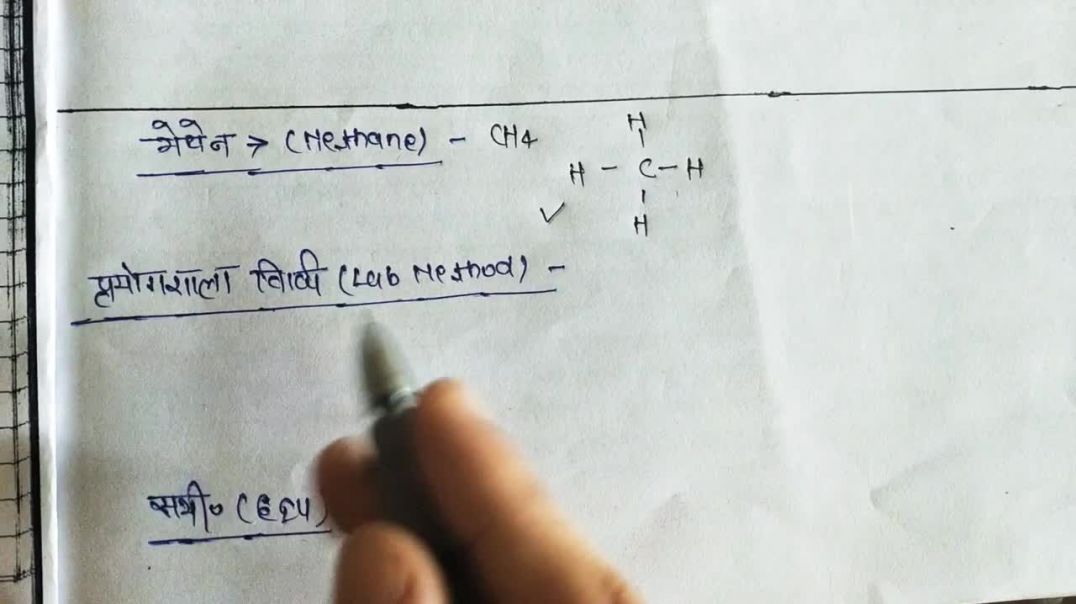 मेथेन → (Methane) - CH4
H
H - C - H
H
प्रयोगशाला विधि (Lab Method) -
समी० (Eqn)